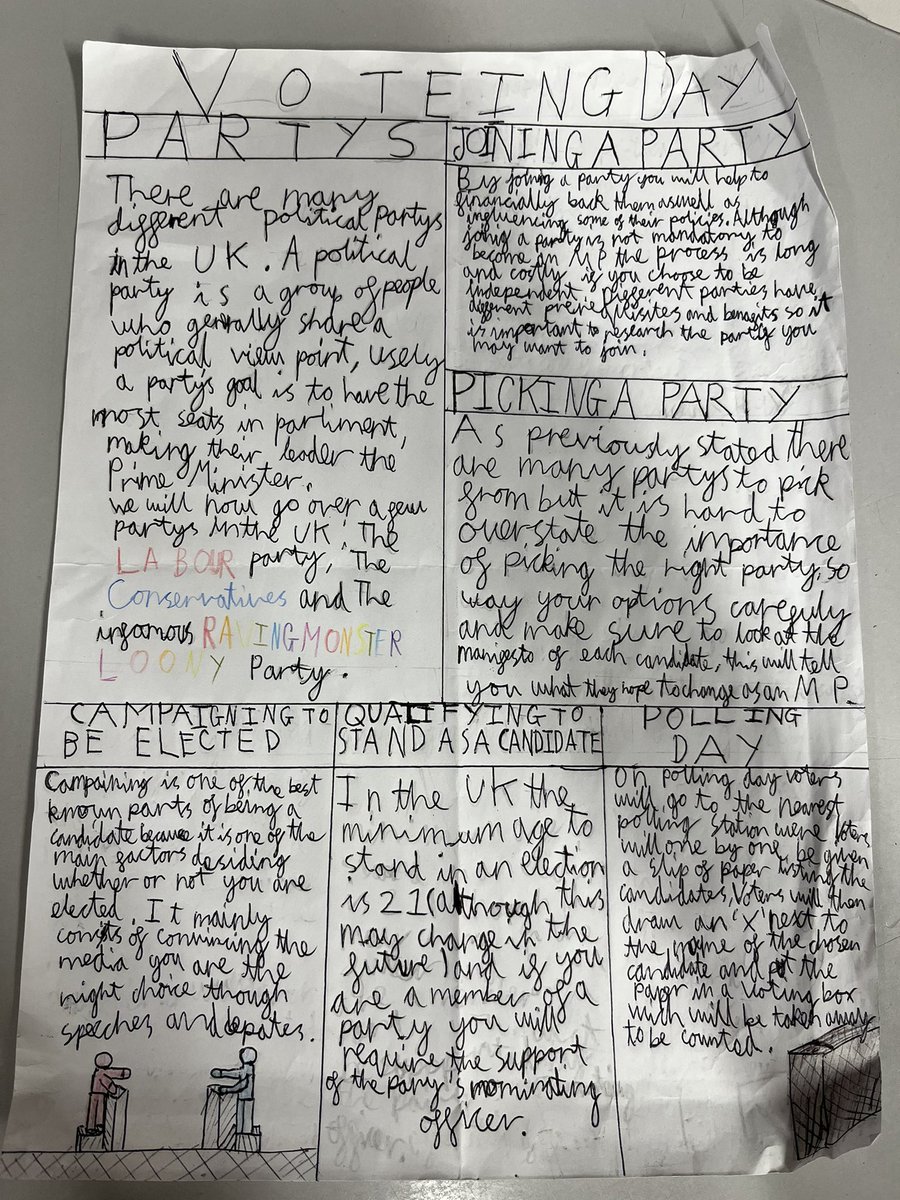 VOTEING DAY
PARTYS
There are many
different political partys
in the UK. A political
party is a group of people
who genrally share a
political view point, usely
a partys goal is to have the
most seats in parliment,
making their leader the
Prime Minister.
we will now go over a few
partys in the UK: The
LABOUR party, The
Conservatives and The
infamous RAVING MONSTER
LOONY Party.
JOINING A PARTY
By joing a party you will help to
financially back them aswell as
influencing some of their policies. Although
joing a party is not mandatory, to
become an MP the process is long
and costly if you choose to be
independent. Different parties have
different prerequisites and benefits so it
is important to research the party you
may want to join.
PICKING A PARTY
As previously stated there
are many partys to pick
from but it is hard to
overstate the importance
of picking the right party, so
way your options carefuly
and make sure to look at the
manifesto of each candidate, this will tell
you what they hope to change as an MP.
CAMPAIGNING TO
BE ELECTED
Campaining is one of the best
known parts of being a
candidate because it is one of the
main factors desiding
whether or not you are
elected. It mainly
consits of convincing the
media you are the
right choice though
speeches and depates.
QUALIFYING TO
STAND AS A CANDIDATE
In the UK the
minimum age to
stand in an election
is 21 (although this
may change in the
future) and if you
are a member of a
party you will
require the support
of the party's nominating
officer.
POLLING
DAY
On polling day voters
will go to the nearest
polling station were voters
will one by one be given
a slip of paper listing the
candidates. Voters will then
draw an 'X' next to
the name of the chosen
candidate and put the
paper in a voting box
wich will be taken away
to be counted.